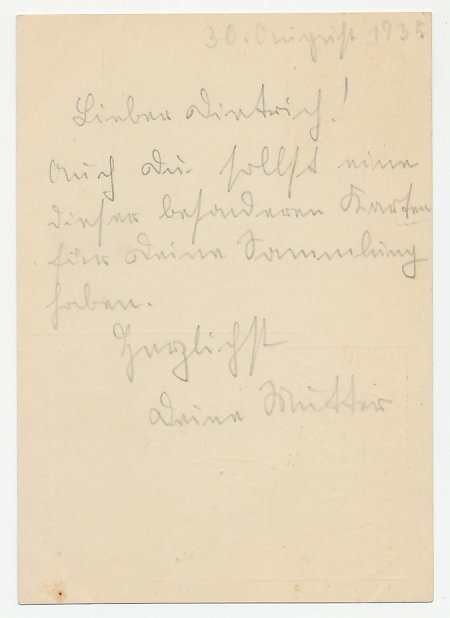 30. August 1935
Lieber Dietrich!
Auch Du sollst eine
dieser besonderen Karten
für Deine Sammlung
haben.
Herzlichst
Deine Mutter